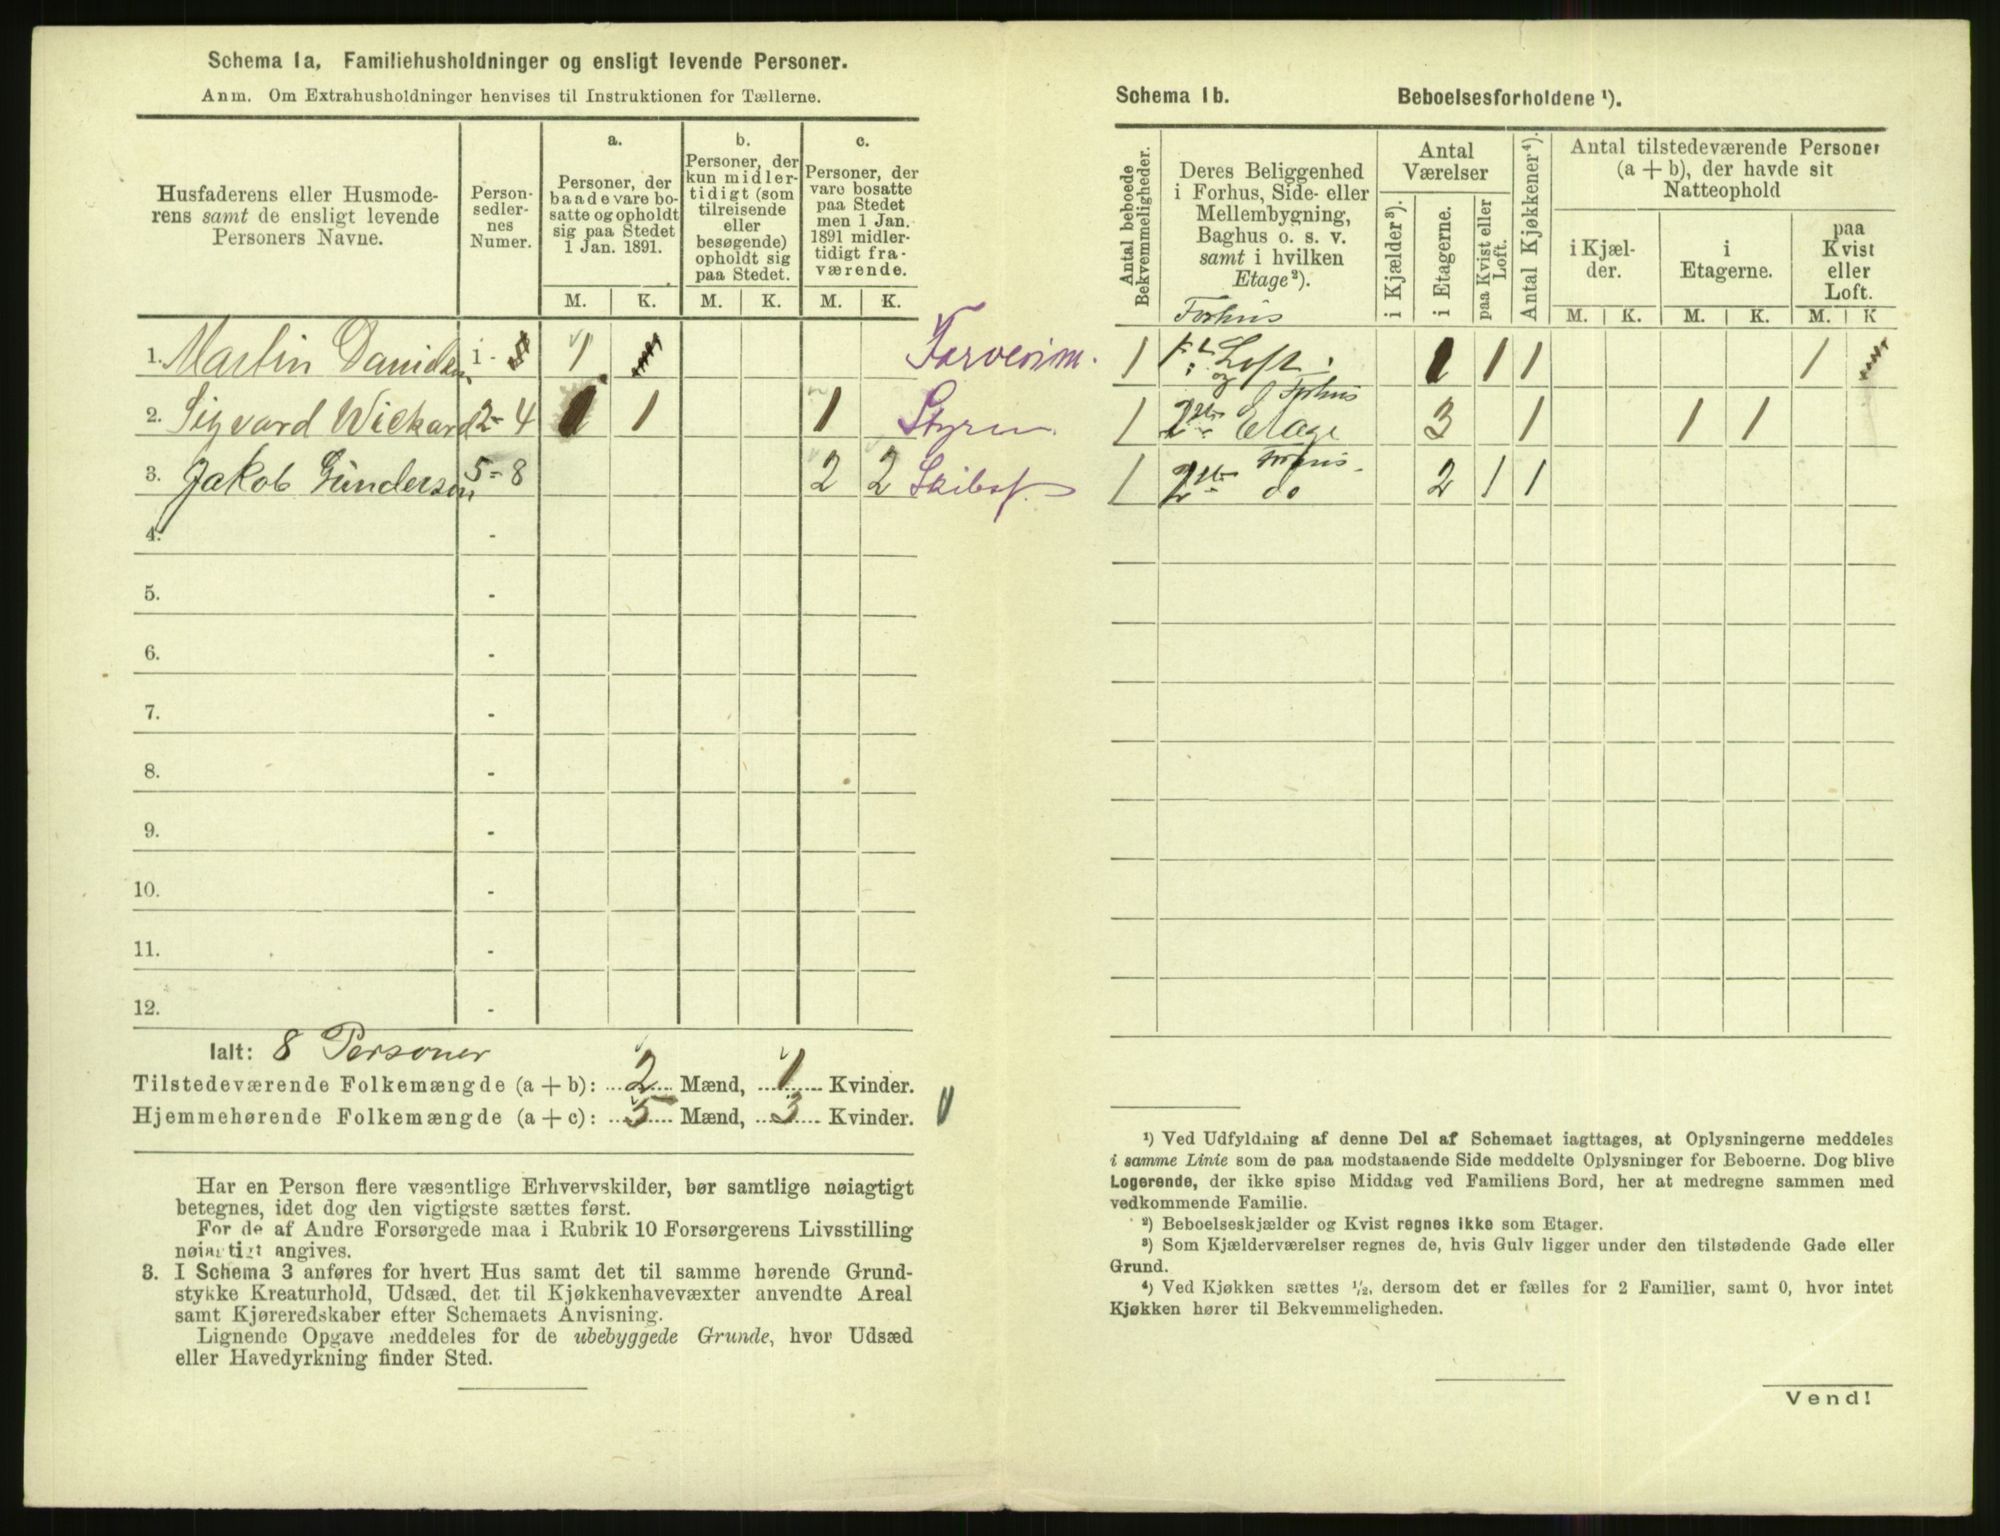 Schema 1a. Familiehusholdninger og ensligt levende Personer.
Anm. Om Extrahusholdninger henvises til Instruktionen for Tællerne.
Husfaderens eller Husmode-
rens samt de ensligt levende
Personers Navne.
Person-
sedler-
nes
Numer.
a.
Personer, der
baade vare bo-
satte og opholdt
sig paa Stedet
1 Jan. 1891.
b.
Personer, der
kun midler-
tidigt (som
tilreisende
eller
besøgende)
opholdt sig
paa Stedet.
c.
Personer, der
vare bosatte
paa Stedet
men 1 Jan.
1891 midler-
tidigt fra-
værende.
M. K. M. K. M. K.
1. Martin Danielsen 1 - 1
2. Sigvard Wickard 2-4 1 1 1 Styrm.
3. Jakob Gundersen 5-8 2 2 Skibsf.
4. -
5. -
6. -
7. -
8. -
9. -
10. -
11. -
12. -
Ialt: 8 Personer
Tilstedeværende Folkemængde (a + b): 2 Mænd, 1 Kvinder.
Hjemmehørende Folkemængde (a + c): 5 Mænd, 3 Kvinder.
Har en Person flere væsentlige Erhvervskilder, bør samtlige nøiagtigt
betegnes, idet dog den vigtigste sættes først.
For de af Andre Forsørgede maa i Rubrik 10 Forsørgerens Livsstilling
nøiagtigt angives.
3. I Schema 3 anføres for hvert Hus samt det til samme hørende Grund-
stykke Kreaturhold, Udsæd, det til Kjøkkenhavevæxter anvendte Areal
samt Kjøreredskaber efter Schemaets Anvisning.
Lignende Opgave meddeles for de ubebyggede Grunde, hvor Udsæd
eller Havedyrkning finder Sted.
Schema 1b. Beboelsesforholdene ¹).
Antal beboede
Bekvemmeligheder.
Deres Beliggenhed
i Forhus, Side- eller
Mellembygning,
Baghus o. s. v.
samt i hvilken
Etage ²).
Antal
Værelser
i Kjælder ³).
i Etagerne.
paa Kvist eller
Loft.
Antal Kjøkkener ⁴).
Antal tilstedeværende Personer
(a + b), der havde sit
Natteophold
i Kjæl-
der.
i
Etagerne.
paa
Kvist
eller
Loft.
M. K. M. K. M. K
Forhus
1 1ste og Loft. 1 1 1 1
Forhus
1 2den Etage 3 1 1 1
Forhus.
1 2den do 2 1 1
¹) Ved Udfyldning af denne Del af Schemaet iagttages, at Oplysningerne meddeles
i samme Linie som de paa modstaaende Side meddelte Oplysninger for Beboerne. Dog blive
Logerende, der ikke spise Middag ved Familiens Bord, her at medregne sammen med
vedkommende Familie.
²) Beboelseskjælder og Kvist regnes ikke som Etager.
³) Som Kjælderværelser regnes de, hvis Gulv ligger under den tilstødende Gade eller
Grund.
⁴) Ved Kjøkken sættes ½, dersom det er fælles for 2 Familier, samt 0, hvor intet
Kjøkken hører til Bekvemmeligheden.
Vend!